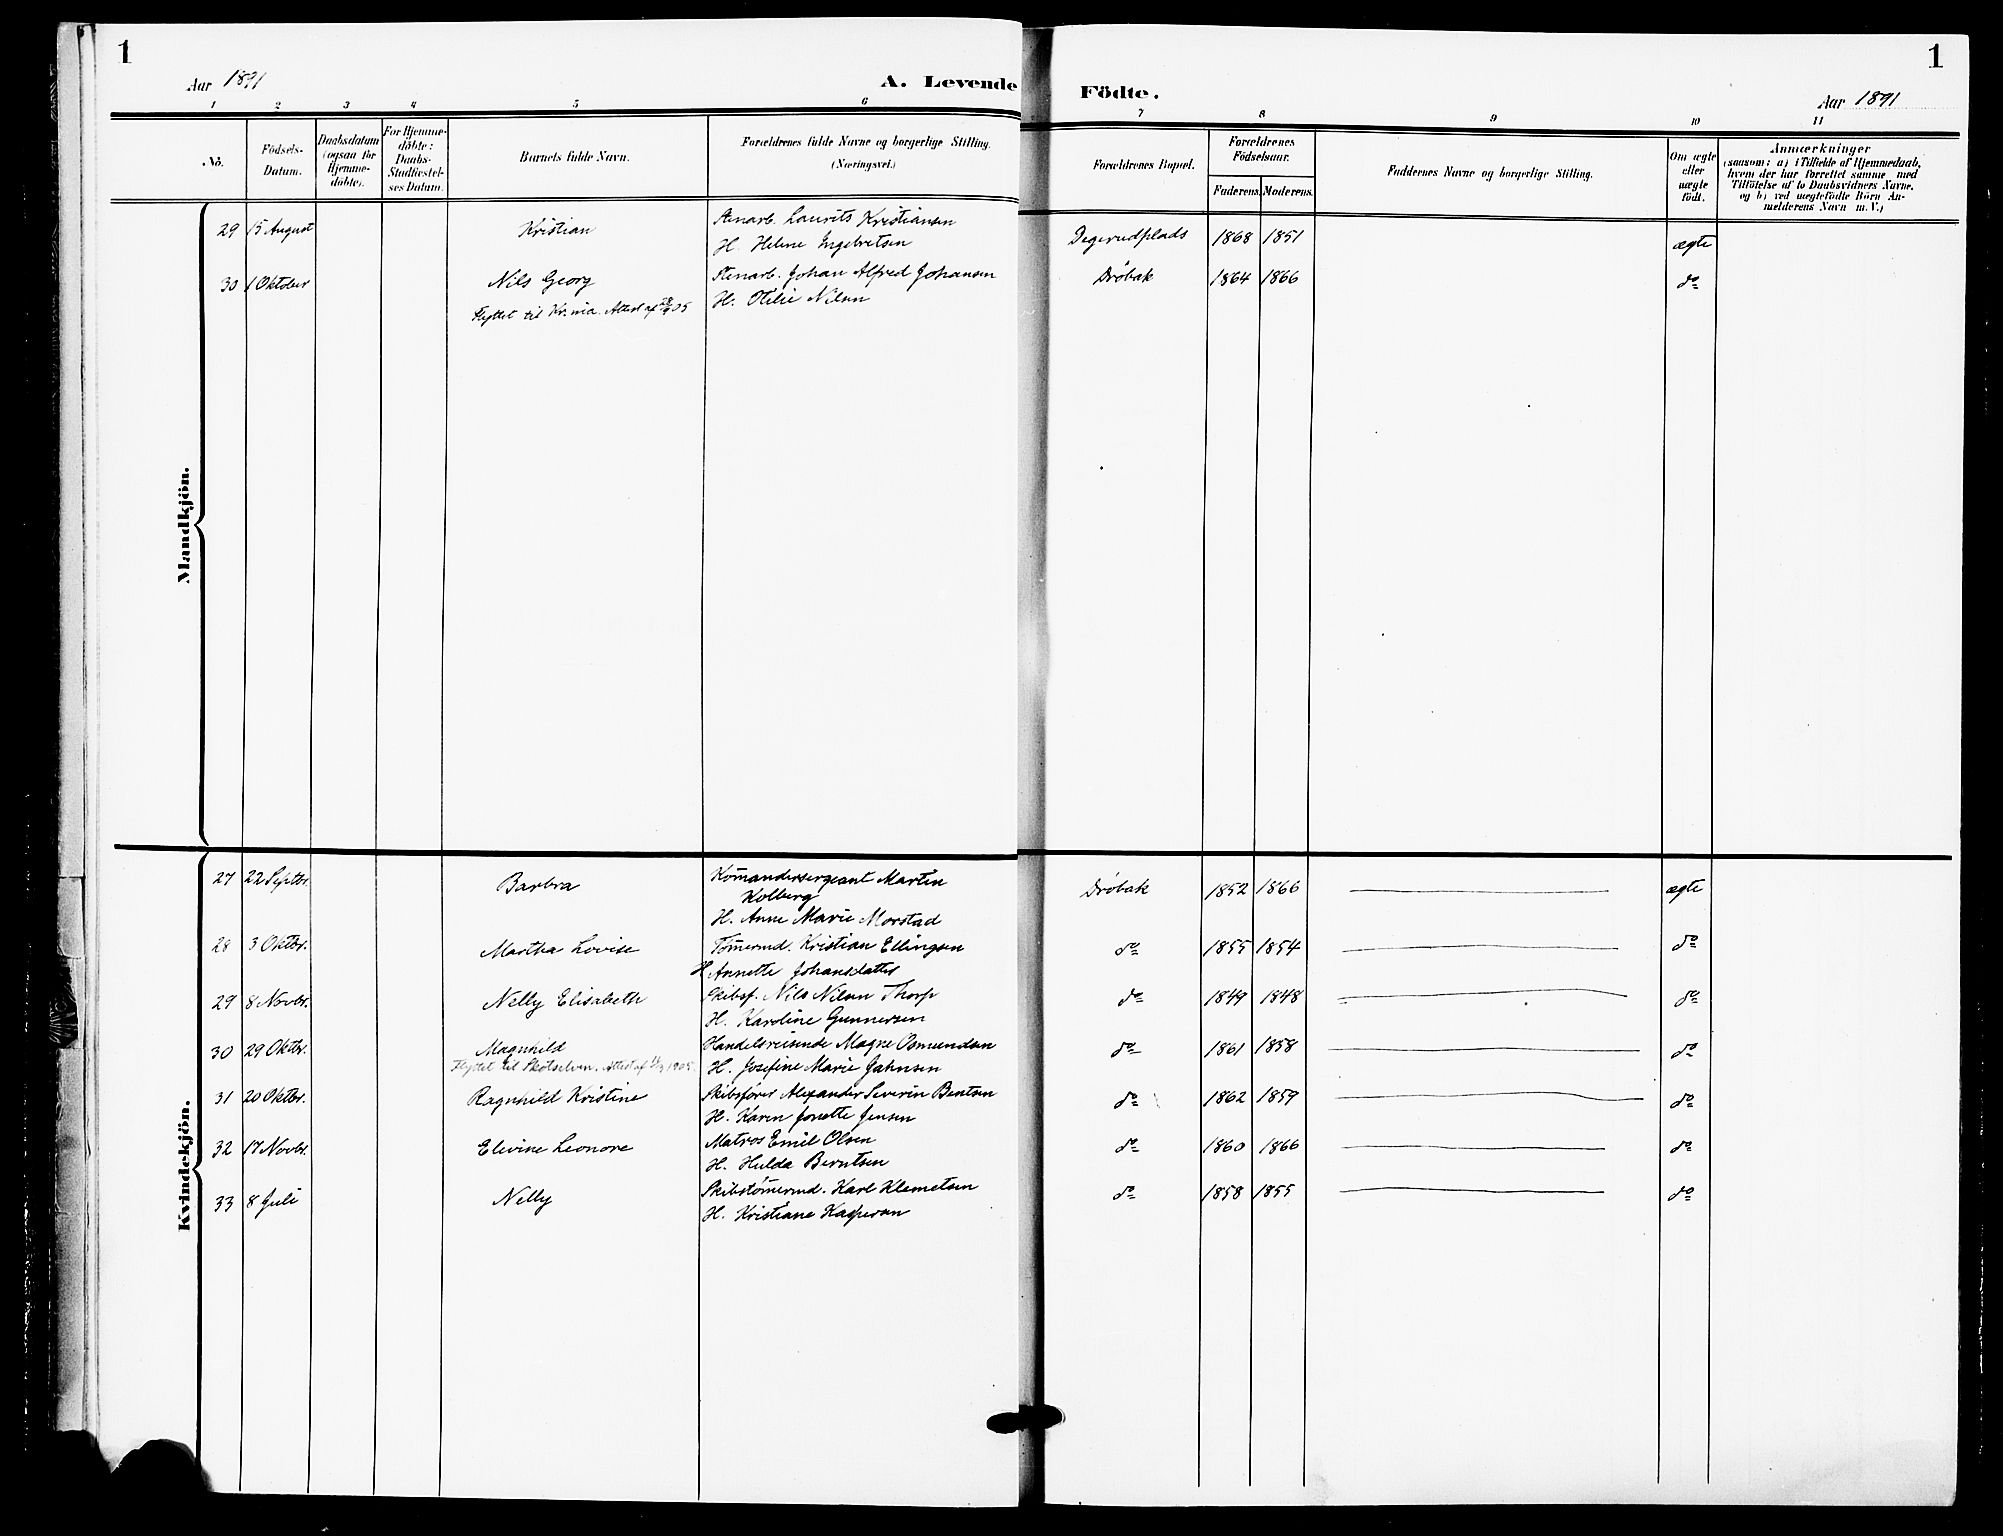 1
1
Aar 1891
A. Levende Födte.
Aar 1891
1 2 3 4 5 6 7 8 9 10 11
No.
Födsels-Datum.
Daabsdatum (ogsaa for Hjemme-döbte).
For Hjemme-döbte: Daabs-Stadfæstel-ses Datum.
Barnets fulde Navn.
Forældrenes fulde Navne og borgerlige Stilling. (Næringsvei.)
Forældrenes Bopæl.
Forældrenes Födselsaar.
Faderens. Moderens.
Faddernes Navne og borgerlige Stilling.
Om ægte eller uægte födt.
Anmærkninger
(saasom: a) i Tilfælde af Hjemmedaab,
hvem der har forrettet samme, med
Tilföielse af to Daabsvidners Navne,
og b) ved uægtefödte Börn An-
melderens Navn m. V.)
Mandkjön.
29 15 August Kristian Stenarb. Laurits Kristiansen Degerudplads 1868 1851 ægte
H. Helene Ingebretsen
30 1 Oktober Nils Georg Stenarb. Johan Alfred Johansen Drøbak 1864 1866 do
Flyttet til Kr.nia. Attest af 05 H. Otilie Nilsen
Kvindekjön.
27 22 Septbr. Barbra Komandersergeant Martin Drøbak 1852 1866 ægte
Kolberg
H. Anne Marie Morstad
28 3 Oktbr. Martha Lovise Tømermd. Kristian Ellingsen do 1855 1854 do
H Annette Johansdatter
29 8 Novbr. Nelly Elisabeth Skibsf. Nils Nilsen Thorp do 1849 1848 do
H. Karoline Gunnersen
30 29 Oktbr. Magnhild Handelsreisende Magne Osmundsen do 1861 1858 do
Flyttet til Skotselven. Attest af 1905. H. Josefine Marie Jahnsen
31 20 Oktbr. Ragnhild Kristine Skibsfører Alexander Severin Bentsen do 1862 1859 do
H. Karen Jonette Jensen
32 17 Novbr. Elevine Leonore Matros Emil Olsen do 1860 1866 do
H. Hulda Berntsen
33 8 Juli Nelly Skibstømermd. Karl Klemetsen do 1858 1855 do
H. Kristiane Kaspersen